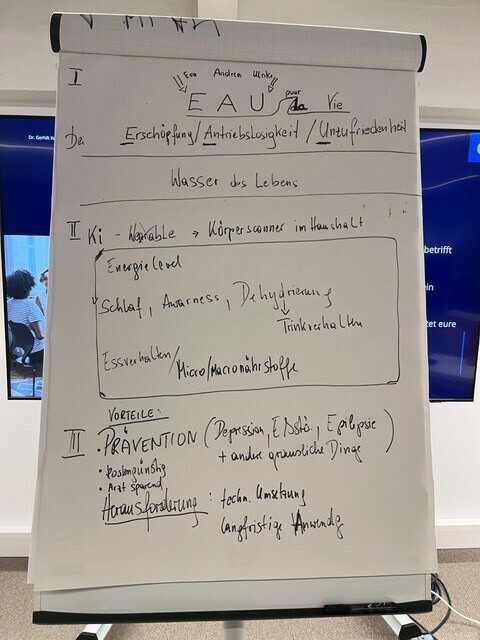 I
Eva Andrea Ulrike
EAU pour la Vie
Bei Erschöpfung/Antriebslosigkeit/Unzufriedenheit
Wasser des Lebens
II Ki - Wearable → Körperscanner im Haushalt
Energielevel
Schlaf, Awarness, Dehydrierung
Trinkverhalten
Essverhalten/Micro/Macronährstoffe
VORTEILE:
III • PRÄVENTION (Depression, Esstö., Epilepsie
+ andere grausliche Dinge)
• kostengünstig
• Arzt sparend
Herausforderung: techn. Umsetzung
langfristige Anwendg
Dr. Gerhilt
betrifft
ein
tet eure